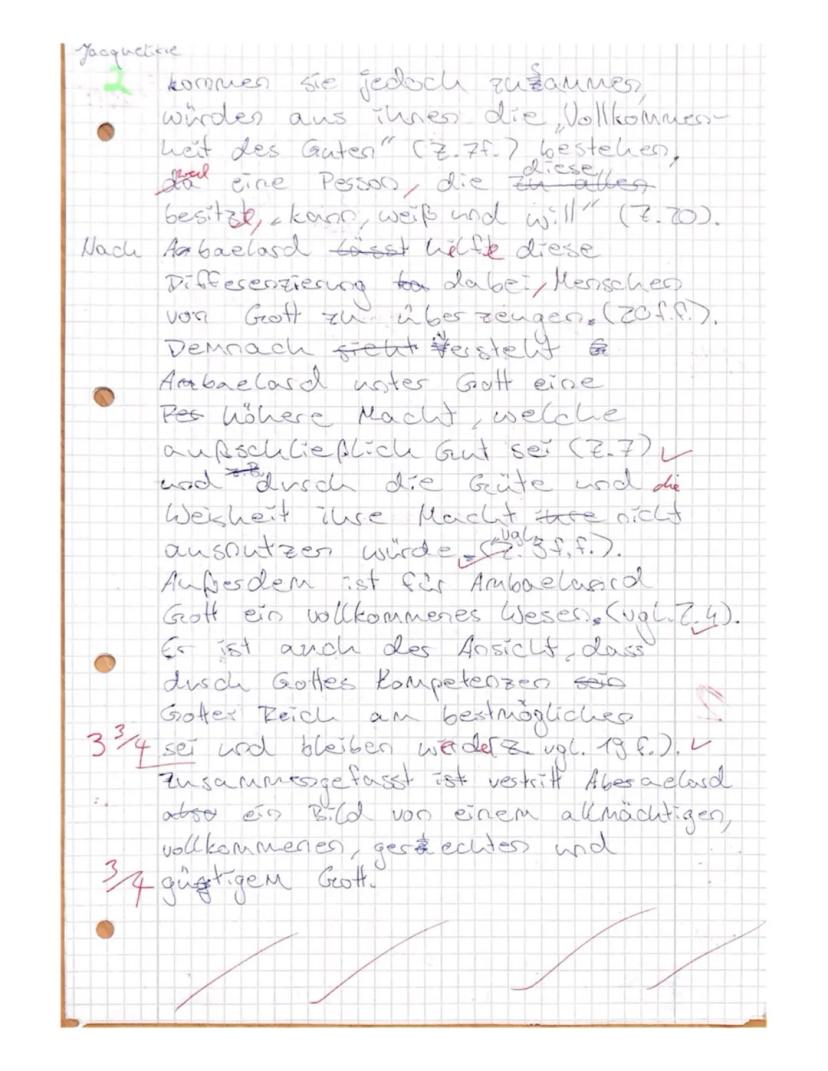 Jacqueline
2
kommen sie jedoch zusammen,
würden aus ihnen die „Vollkommen-
heit des Guten" (Z.7f.) bestehen,
da weil eine Person, die zu allen diese
besitzt, „kann, weiß und will" (Z.20).
Nach Abaelard lässt hilft diese
Differenzierung dabei, Menschen
von Gott zu überzeugen. (20f.f.).
Demnach sieht versteht
Ambaelard unter Gott eine
Pes höhere Macht, welche
außschließlich Gut sei (Z.7)
und durch die Güte und die
Weisheit ihre Macht ihre nicht
ausnutzen würde. (vgl. Z. 3f.f.).
Außerdem ist für Ambaelard
Gott ein vollkommenes Wesen. (vgl. Z.4).
Er ist auch der Ansicht, dass
durch Gottes Kompetenzen sein
Gottes Reich am bestmöglichen
3 3/4 sei und bleiben werde (Z vgl. 19f.).
Zusammengefasst ist vertritt Aberaelard
also ein Bild von einem allmächtigen,
vollkommenen, gerechten und
3/4 gütigem Gott.